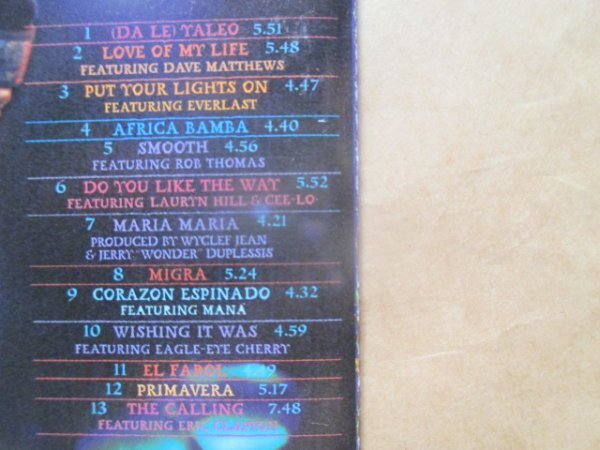 1 (DA LE) YALEO 5.51
2 LOVE OF MY LIFE 5.48
FEATURING DAVE MATTHEWS
3 PUT YOUR LIGHTS ON 4.47
FEATURING EVERLAST
4 AFRICA BAMBA 4.40
5 SMOOTH 4.56
FEATURING ROB THOMAS
6 DO YOU LIKE THE WAY 5.52
FEATURING LAURYN HILL & CEE-LO
7 MARIA MARIA 4.21
PRODUCED BY WYCLEF JEAN
& JERRY "WONDER" DUPLESSIS
8 MIGRA 5.24
9 CORAZON ESPINADO 4.32
FEATURING MANÁ
10 WISHING IT WAS 4.59
FEATURING EAGLE-EYE CHERRY
11 EL FAROL
12 PRIMAVERA 5.17
13 THE CALLING 7.48
FEATURING ERIC CLAPTON